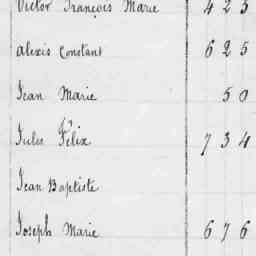 Victor François Marie 4 2 5
Alexis Constant 6 2 5
Jean Marie 5 0
Jules Félix 7 3 4
Jean Baptiste
Joseph Marie 6 7 6